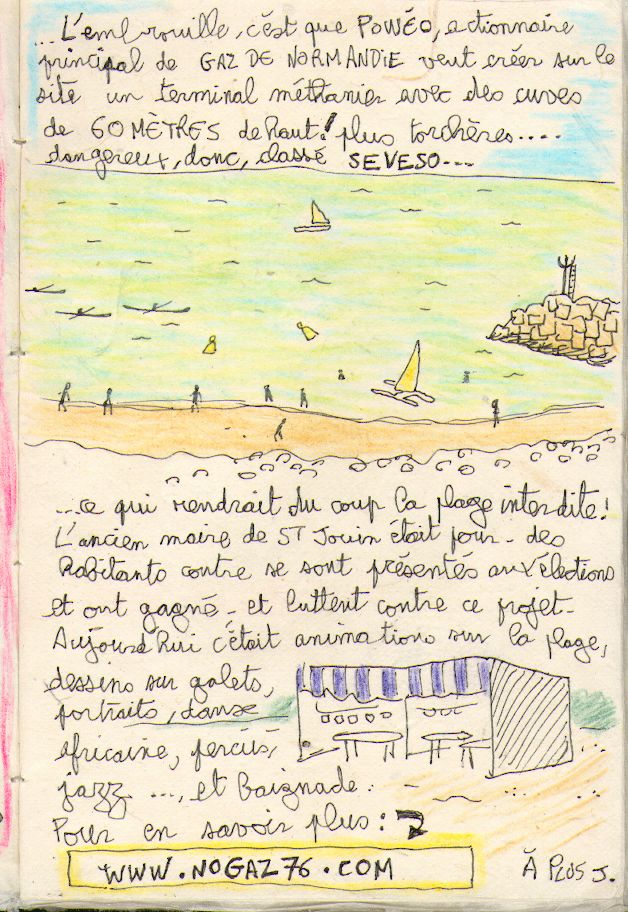 ...L'embrouille, c'est que POWÉO, actionnaire
principal de GAZ DE NORMANDIE veut créer sur le
site un terminal méthanier avec des cuves
de 60 MÈTRES de haut! plus torchères....
dangereux, donc, classé SEVESO...
...ce qui rendrait du coup la plage interdite!
L'ancien maire de ST Jouin était pour - des
habitants contre se sont présentés aux élections
et ont gagné - et luttent contre ce projet -
Aujourd'hui c'était animations sur la plage,
dessins sur galets,
portraits, danse
africaine, percus,
jazz ..., et baignade.
Pour en savoir plus :
WWW.NOGAZ76.COM
À PLUS J.